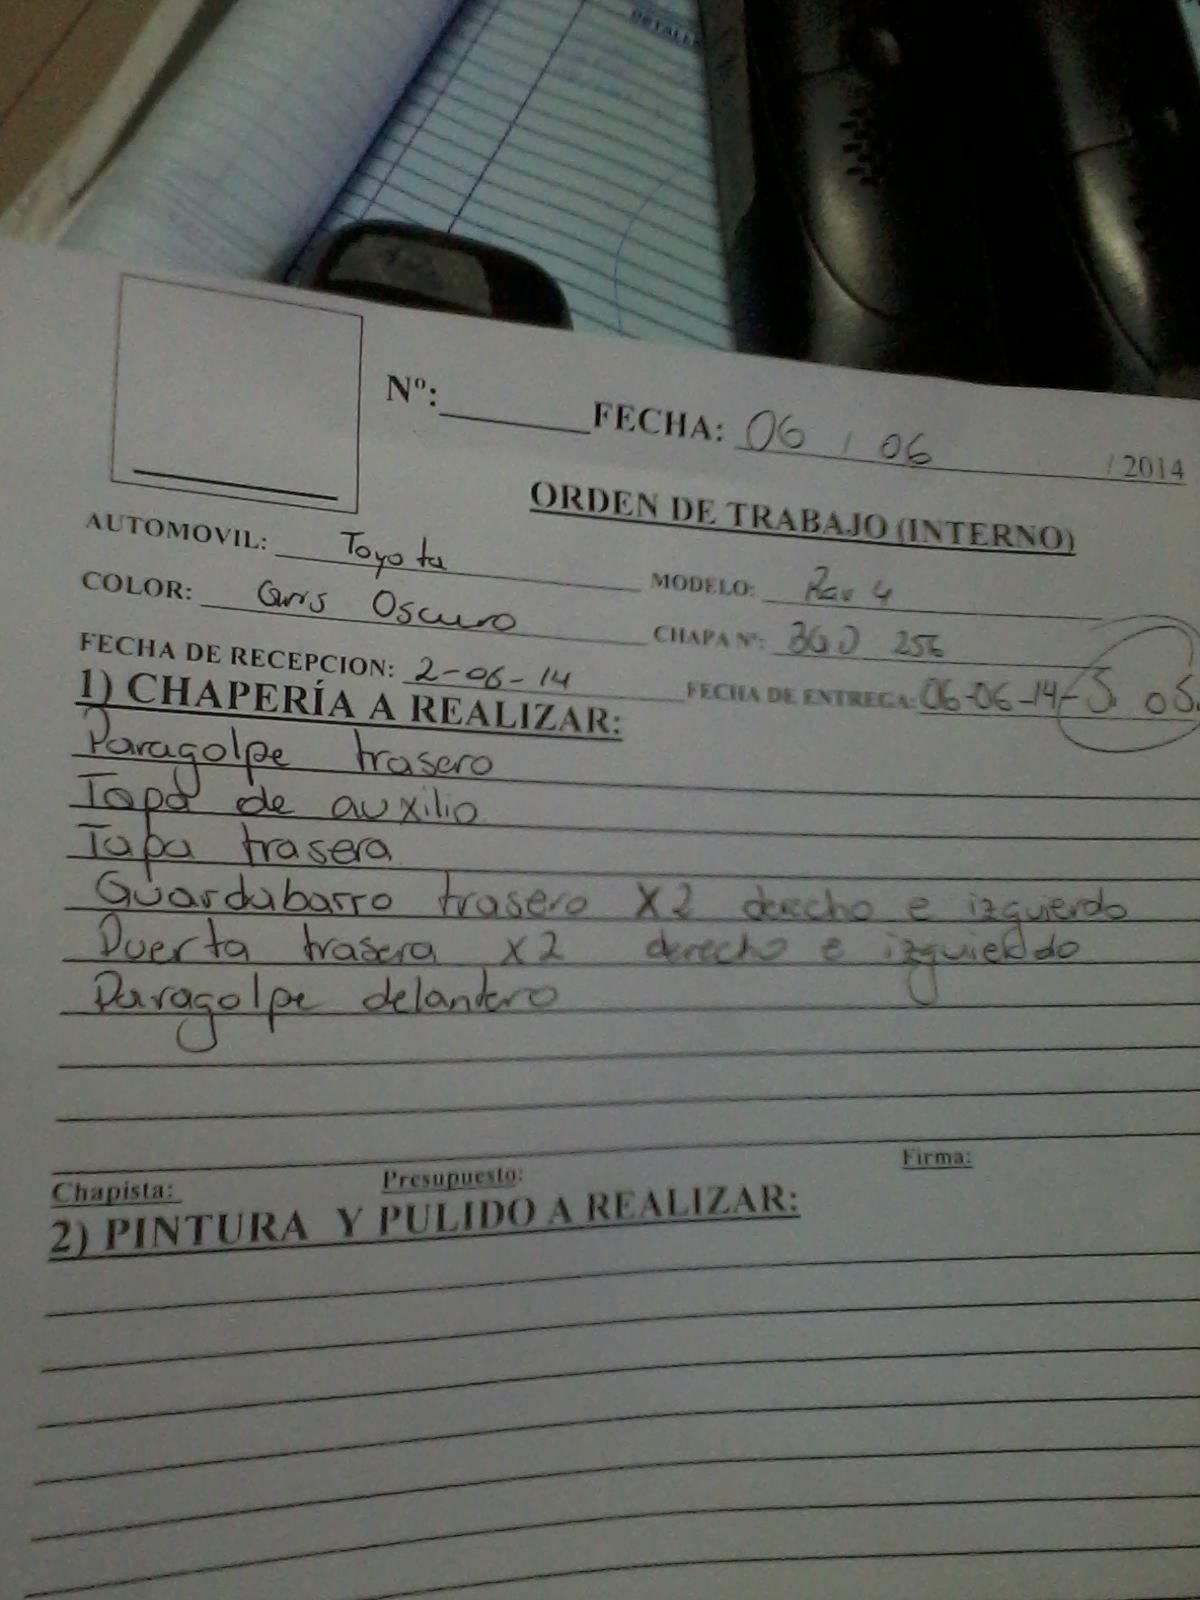 DETALLE
Nº: FECHA: 06 / 06 / 2014
ORDEN DE TRABAJO (INTERNO)
AUTOMOVIL: Toyota MODELO: Rav 4
COLOR: Gris Oscuro CHAPA Nº: 256
FECHA DE RECEPCION: 2-06-14 FECHA DE ENTREGA: 06-06-14-
1) CHAPERÍA A REALIZAR:
Paragolpe trasero
Tapa de auxilio
Tapa trasera
Guardabarro trasero X2 derecho e izquierdo
Puerta trasera X2 derecho e izquierdo
Paragolpe delantero
Chapista: Presupuesto: Firma:
2) PINTURA Y PULIDO A REALIZAR: